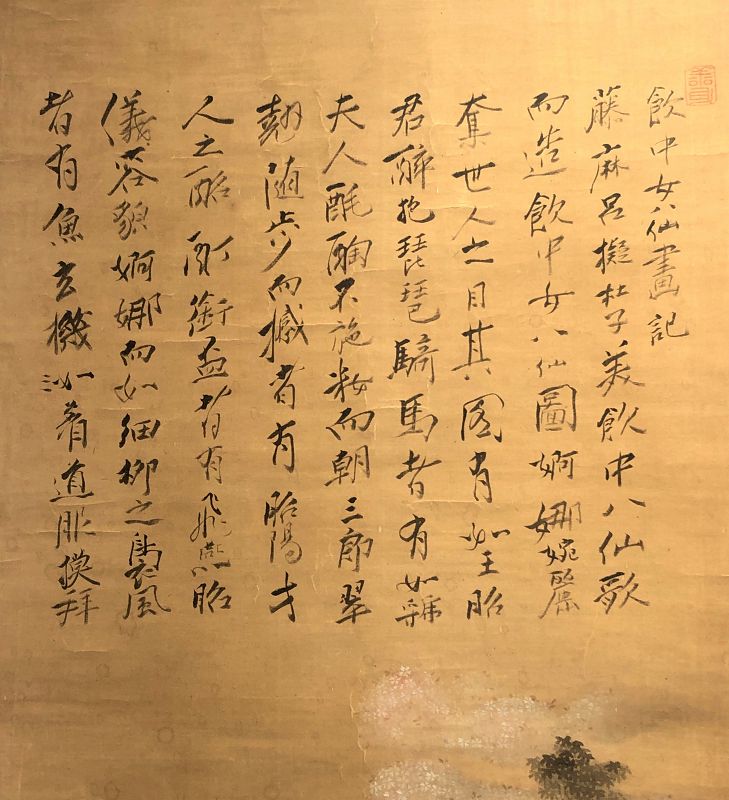 飲中女八仙畫記
藤麻呂擬杜子美飲中八仙歌
而造飲中女八仙圖婀娜婉麗
奪世人之目其図有如王昭
君醉抱琵琶騎馬者有如虢
夫人酕醄不施粧而朝三郎翠
翹随歩而撼者有昭陽才
人之酩酊銜盃者有飛燕昭
儀容貌婀娜而如細柳之裊風
者有魚玄機着道服摸拜